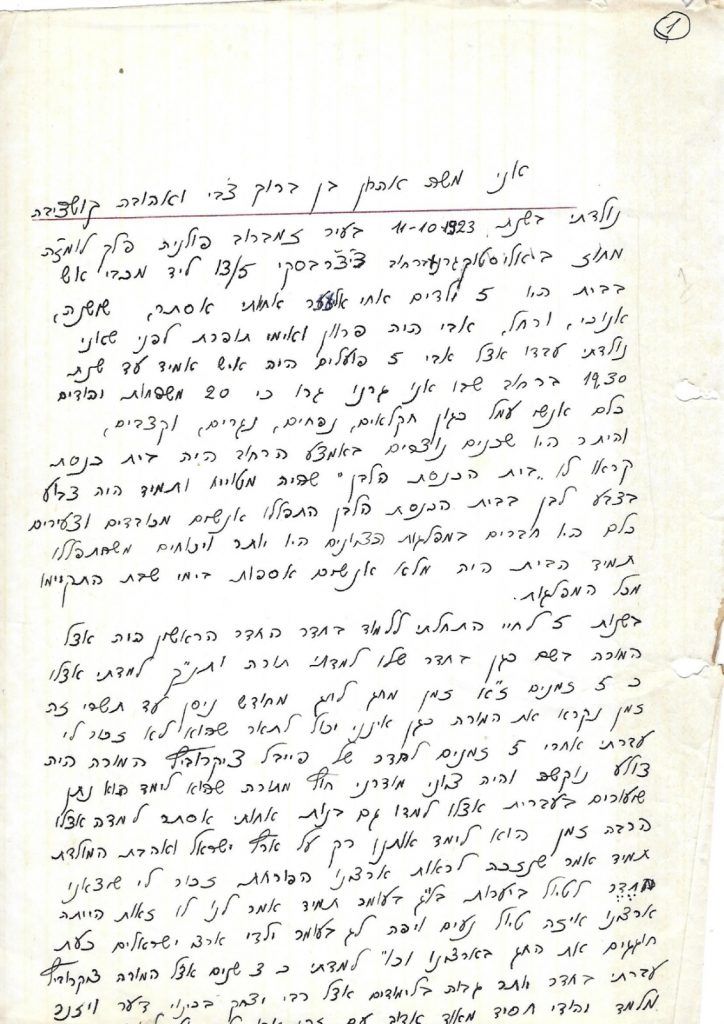 1
אני משה אהרן בן ברוך צבי ואהובה
נולדתי בשנת 11-10-1923 בעיר זמברוב פולנית פלך לומז'ה
מחוז ביאליסטוק גרנו ברחוב ליד מכבי אש
בבית היו 5 ילדים אחי אחותי אסתר, שושנה,
אנוכי, ורחל, אבי היה פרוון ואימי תופרת לפני שאני
נולדתי עבדו אצל אבי 5 פועלים היה איש אמיד עד שנת
1930 ברחוב שבו אני גרנו גרו כ 20 משפחות יהודים
כלם אנשי עמל כגון חקלאים, נפחים, נגרים, וקצבים,
והיתר היו שכנים נוצרים באמצע הרחוב היה בית כנסת
קראו לו "בית הכנסת הלבן" שהיה מטוייח ותמיד היה צבוע
בצבע לבן בבית הכנסת הלבן התפללו אנשים מכובדים וצעירים
כלם היו חברים במפלגות הציונים היו יותר ויכוחים משהתפללו
תמיד הבית היה מלא אנשים אספות בימי שבת התקיימו
מכל המפלגות.
בשנות 5 לחיי התחלתי ללמוד בחדר החדר הראשון היה אצל
המורה בשם כגן בחדר שלו למדתי תורה ותנ"ך למדתי אצלו
כ 5 זמנים ז"א זמן מחג לחג מחודש ניסן עד תשרי זה
זמן נקרא את המורה כגן אינני יכול לתאר שהוא לא זכור לי
עברתי אחרי 5 זמנים לחדר של פייבל המורה היה
צולע נוקשה והיה ציוני מודרני חוץ מתורה שהוא לימד הוא נתן
שעורים בעברית אצלו למדו גם בנות אחותי אסתר למדה אצלו
הרבה זמן הוא לימד אותנו רק על ארץ ישראל ואהבת המולדת
תמיד אמר שנזכה לראות ארצנו הפורחת זכור לי שיצאנו
לטיול ביערות בל"ג בעומר תמיד אמר לנו לו זאת הייתה
ארצנו איזה טיול נעים ויפה לג בעומר ילדי ארצ ישראלים כעת
חוגגים את החג בארצנו וכו' למדתי כ 3 שנים אצל המורה
עברתי בחדר יותר גבוה בלימודים אצל רבי יצחק
מלמד יהודי חסיד מאוד